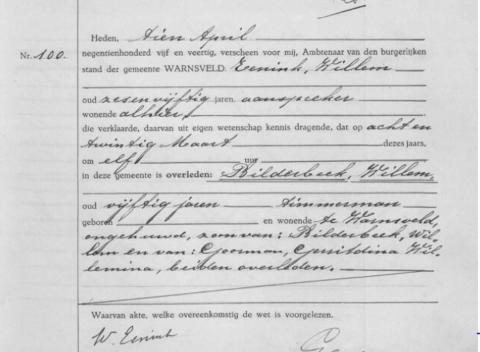 Heden, tien April
negentienhonderd vijf en veertig, verscheen voor mij, Ambtenaar van den burgerlijken
Nr. 100.
stand der gemeente WARNSVELD. Eenink, Willem
oud zesenvijftig jaren, aanspreker
wonende alhier,
die verklaarde, daarvan uit eigen wetenschap kennis dragende, dat op acht en
twintig Maart dezes jaars,
om elf uur
in deze gemeente is overleden: Bilderbeek, Willem,
oud vijftig jaren timmerman
geboren en wonende te Warnsveld,
ongehuwd, zoon van: Bilderbeek, Wil-
lem en van: Goorman, Gerritdina Wil-
lemina, beiden overleden.
Waarvan akte, welke overeenkomstig de wet is voorgelezen.
W. Eenink